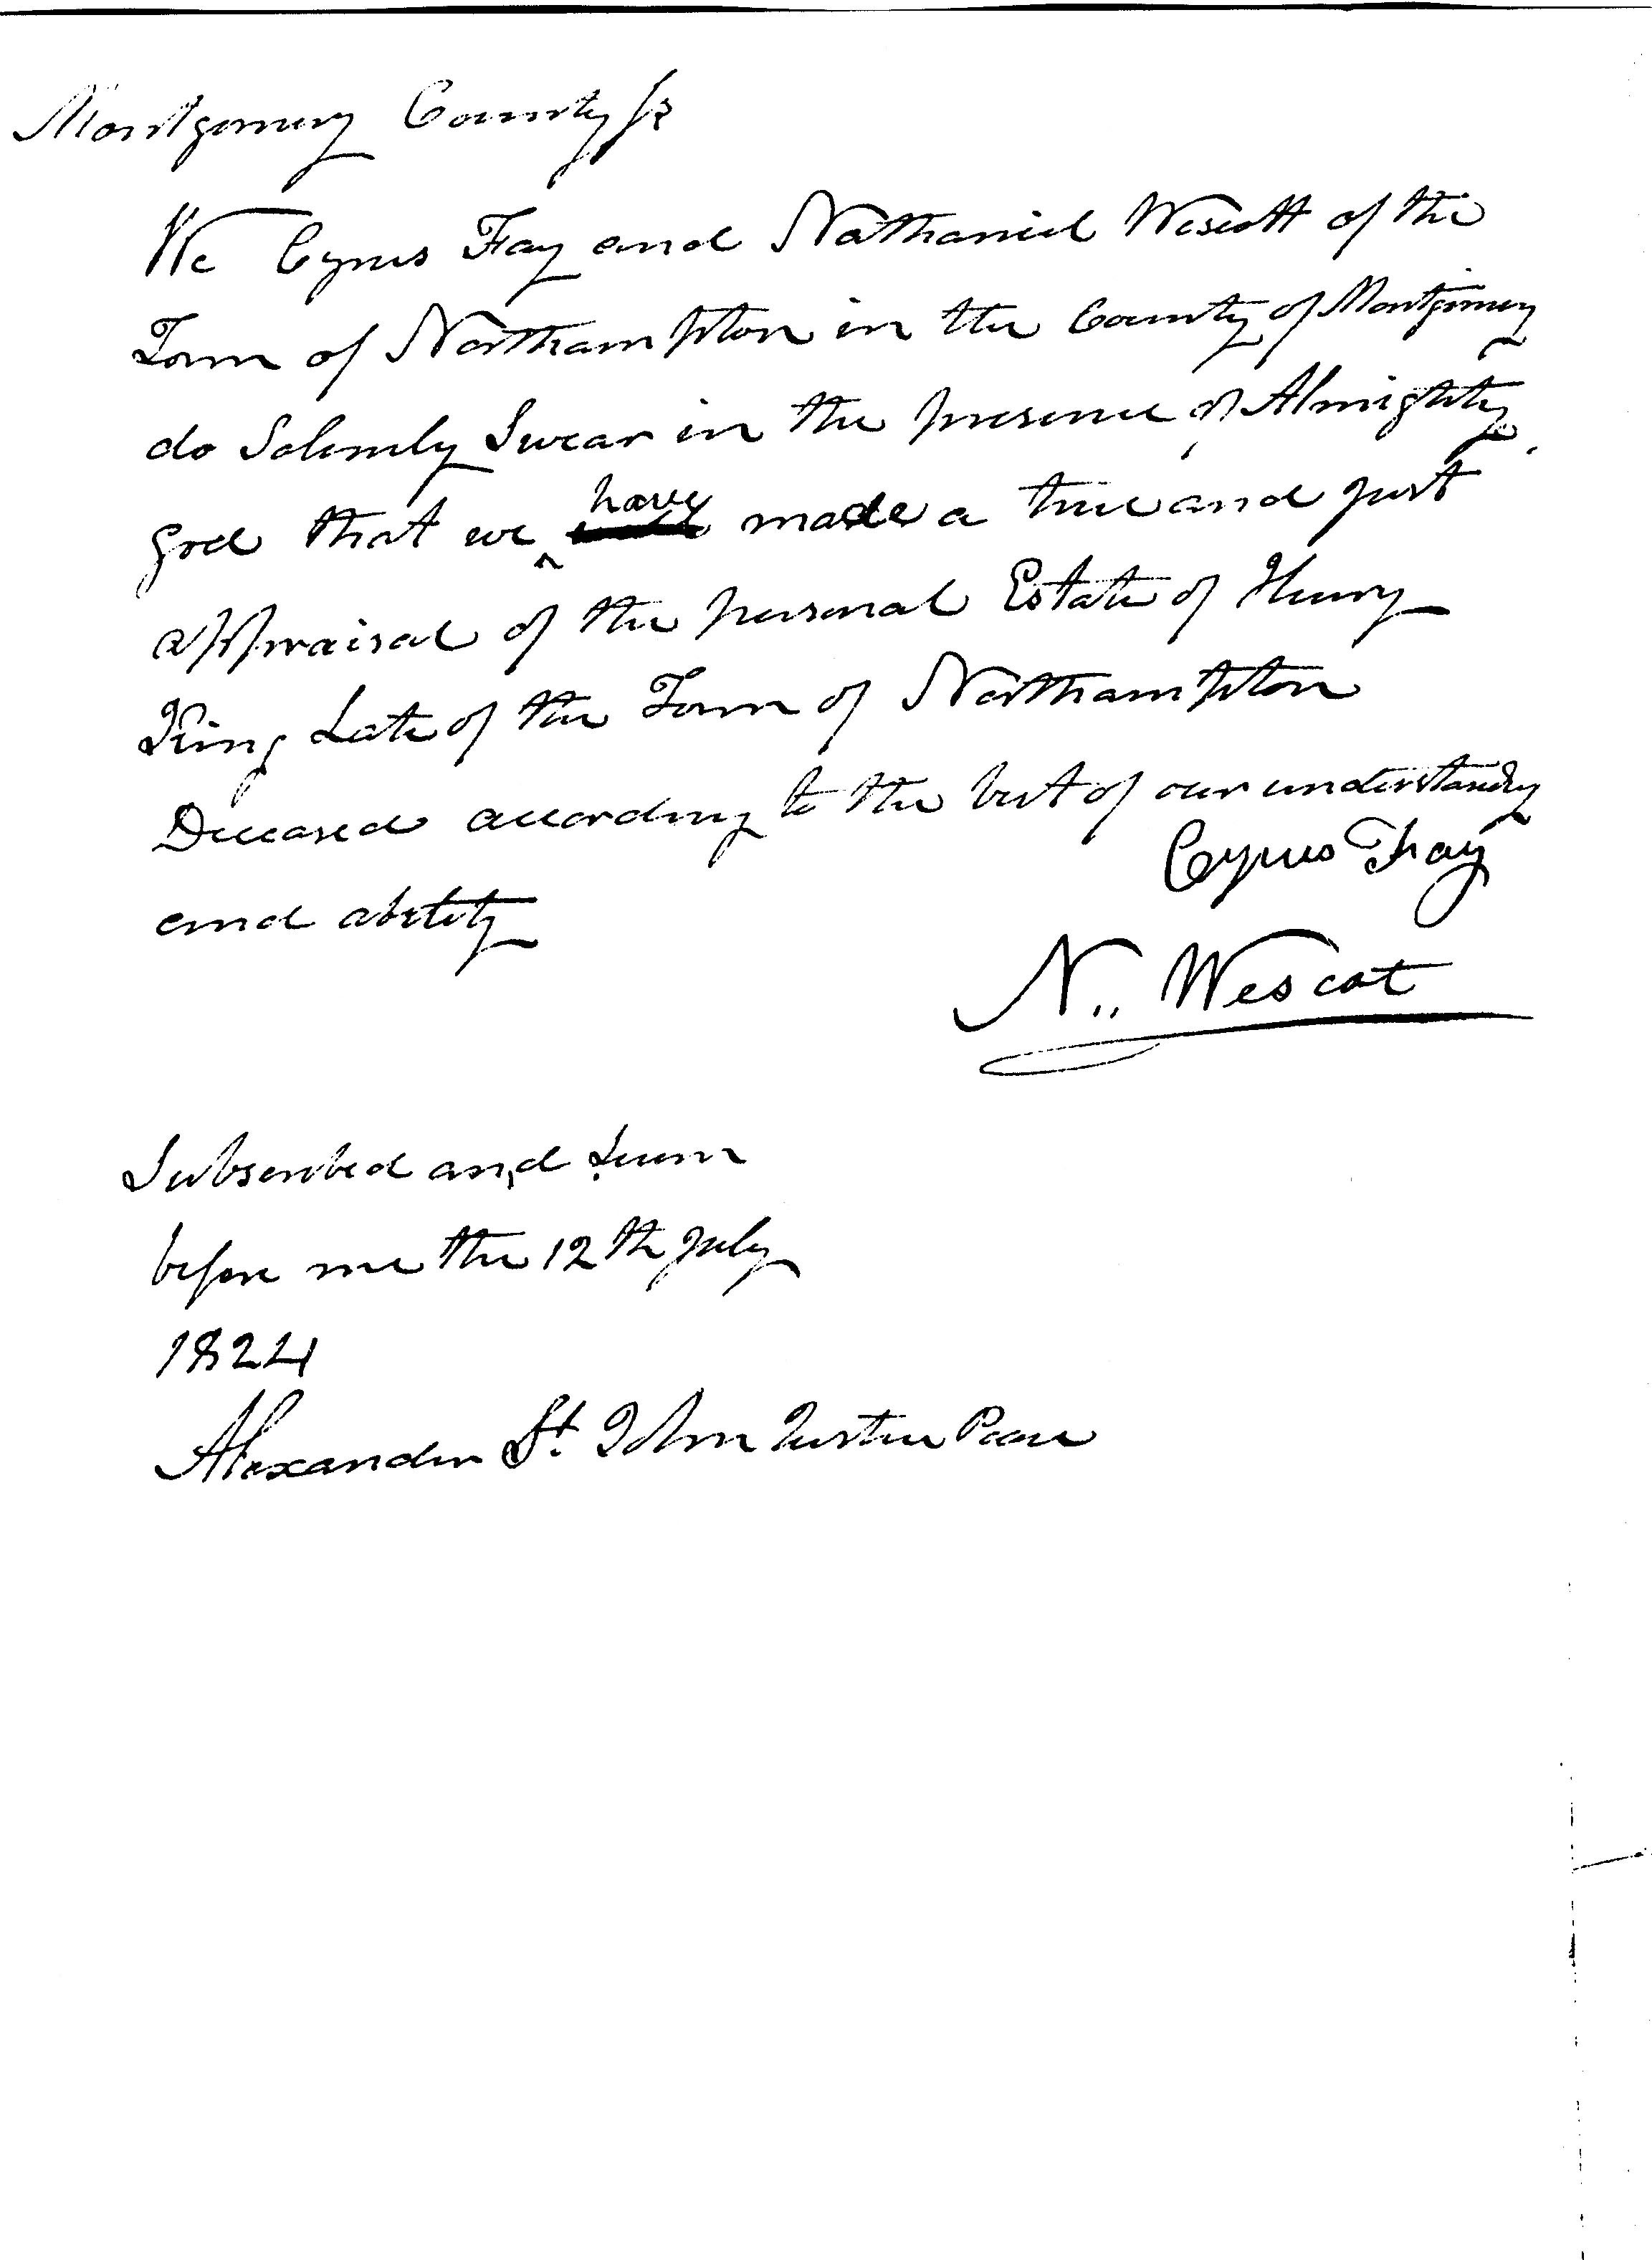 Montgomery County ss
We Cyrus Fay and Nathaniel Wescott of the
Town of Northampton in the County of Montgomery
do Solemnly Swear in the presence of Almighty
god that we have made a true and just
appraisal of the personal Estate of Henry
King Late of the Town of Northampton
Deceased according to the best of our understanding
and ability
Cyrus Fay
N,, Wescot
Subscribed and Sworn
before me the 12th july
1824
Alexander St. John Justice Peace